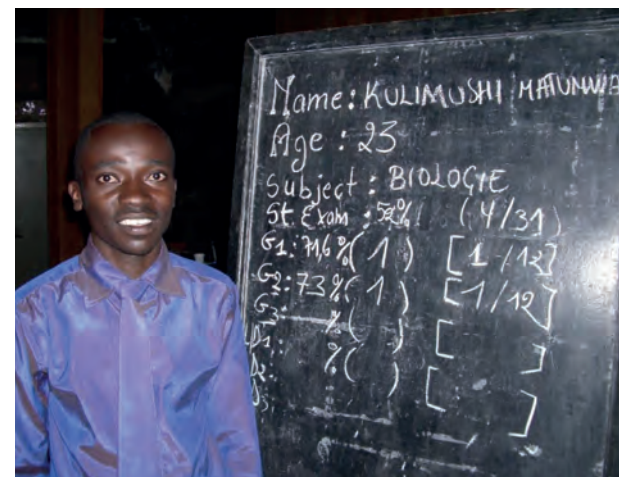 Name: KULIMUSHI
Age: 23
Subject: BIOLOGIE
St. Exam: % (4/31)
G1: 71,6 % ( 1 ) [ 1 /12]
G2: 73 % ( 1 ) [ 1/12 ]
G3: % ( ) [ ]
D1: % ( ) [ ]